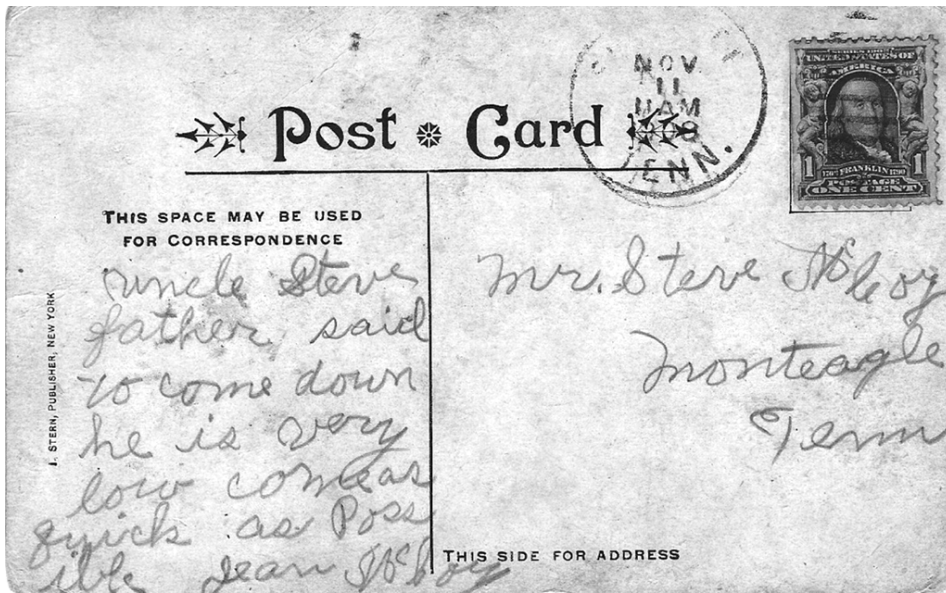 Post Card
NOV
11
11 AM
TENN.
SERIES 1902
UNITED STATES OF
AMERICA
1 1
1706 FRANKLIN 1790
POSTAGE
ONE CENT
THIS SPACE MAY BE USED
FOR CORRESPONDENCE
I. STERN, PUBLISHER, NEW YORK
uncle Steve
father, said
to come down
he is very
low come as
quick as Poss
ible Jean McCoy
Mr. Steve McCoy
Monteagle
Tenn
THIS SIDE FOR ADDRESS